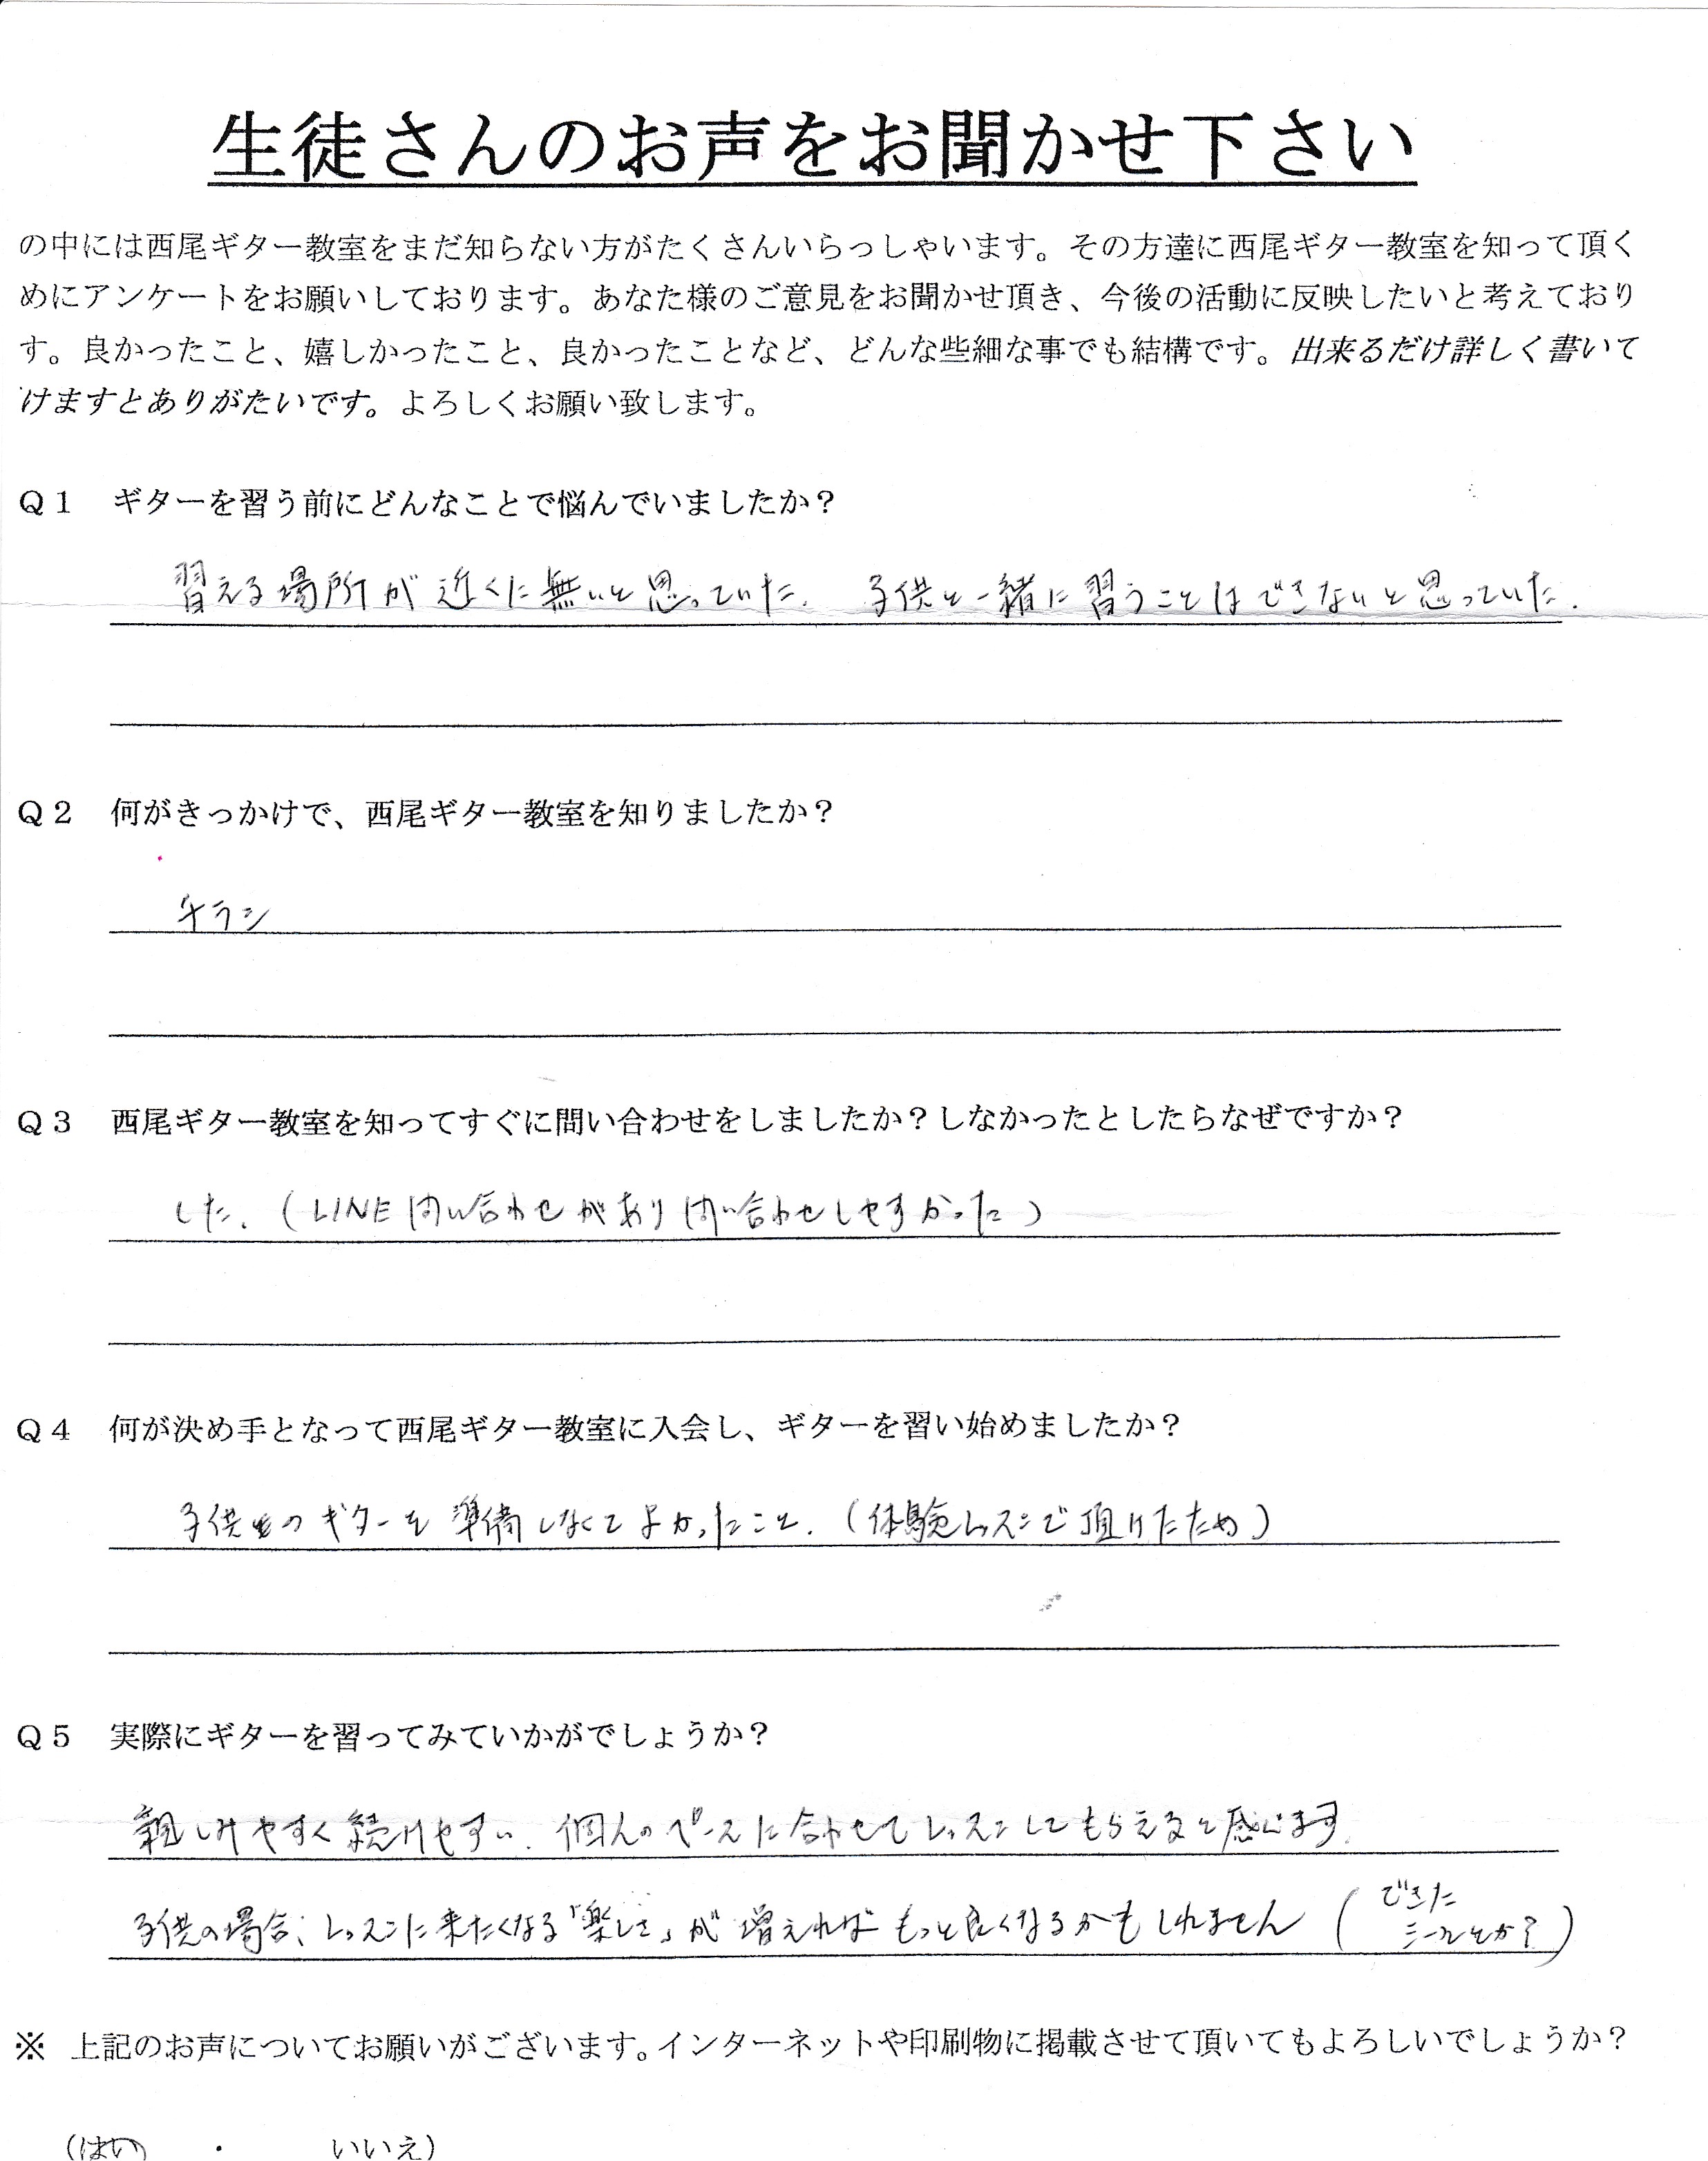 生徒さんのお声をお聞かせ下さい
の中には西尾ギター教室をまだ知らない方がたくさんいらっしゃいます。その方達に西尾ギター教室を知って頂く
めにアンケートをお願いしております。あなた様のご意見をお聞かせ頂き、今後の活動に反映したいと考えており
す。良かったこと、嬉しかったこと、良かったことなど、どんな些細な事でも結構です。出来るだけ詳しく書いて
けますとありがたいです。よろしくお願い致します。
Q1 ギターを習う前にどんなことで悩んでいましたか？
習える場所が近くに無いと思っていた. 子供と一緒に習うことはできないと思っていた.
Q2 何がきっかけで、西尾ギター教室を知りましたか？
チラシ
Q3 西尾ギター教室を知ってすぐに問い合わせをしましたか？しなかったとしたらなぜですか？
した.（LINE問い合わせがあり問い合わせしやすかった）
Q4 何が決め手となって西尾ギター教室に入会し、ギターを習い始めましたか？
子供のギターを準備しなくてよかったこと.（体験レッスンで頂けたため）
Q5 実際にギターを習ってみていかがでしょうか？
親しみやすく続けやすい. 個人のペースに合わせてレッスンしてもらえると感じます.
子供の場合、レッスンに来たくなる「楽しさ」が増えればもっと良くなるかもしれません（できた
シールとか？）
※ 上記のお声についてお願いがございます。インターネットや印刷物に掲載させて頂いてもよろしいでしょうか？
（はい ・ いいえ）